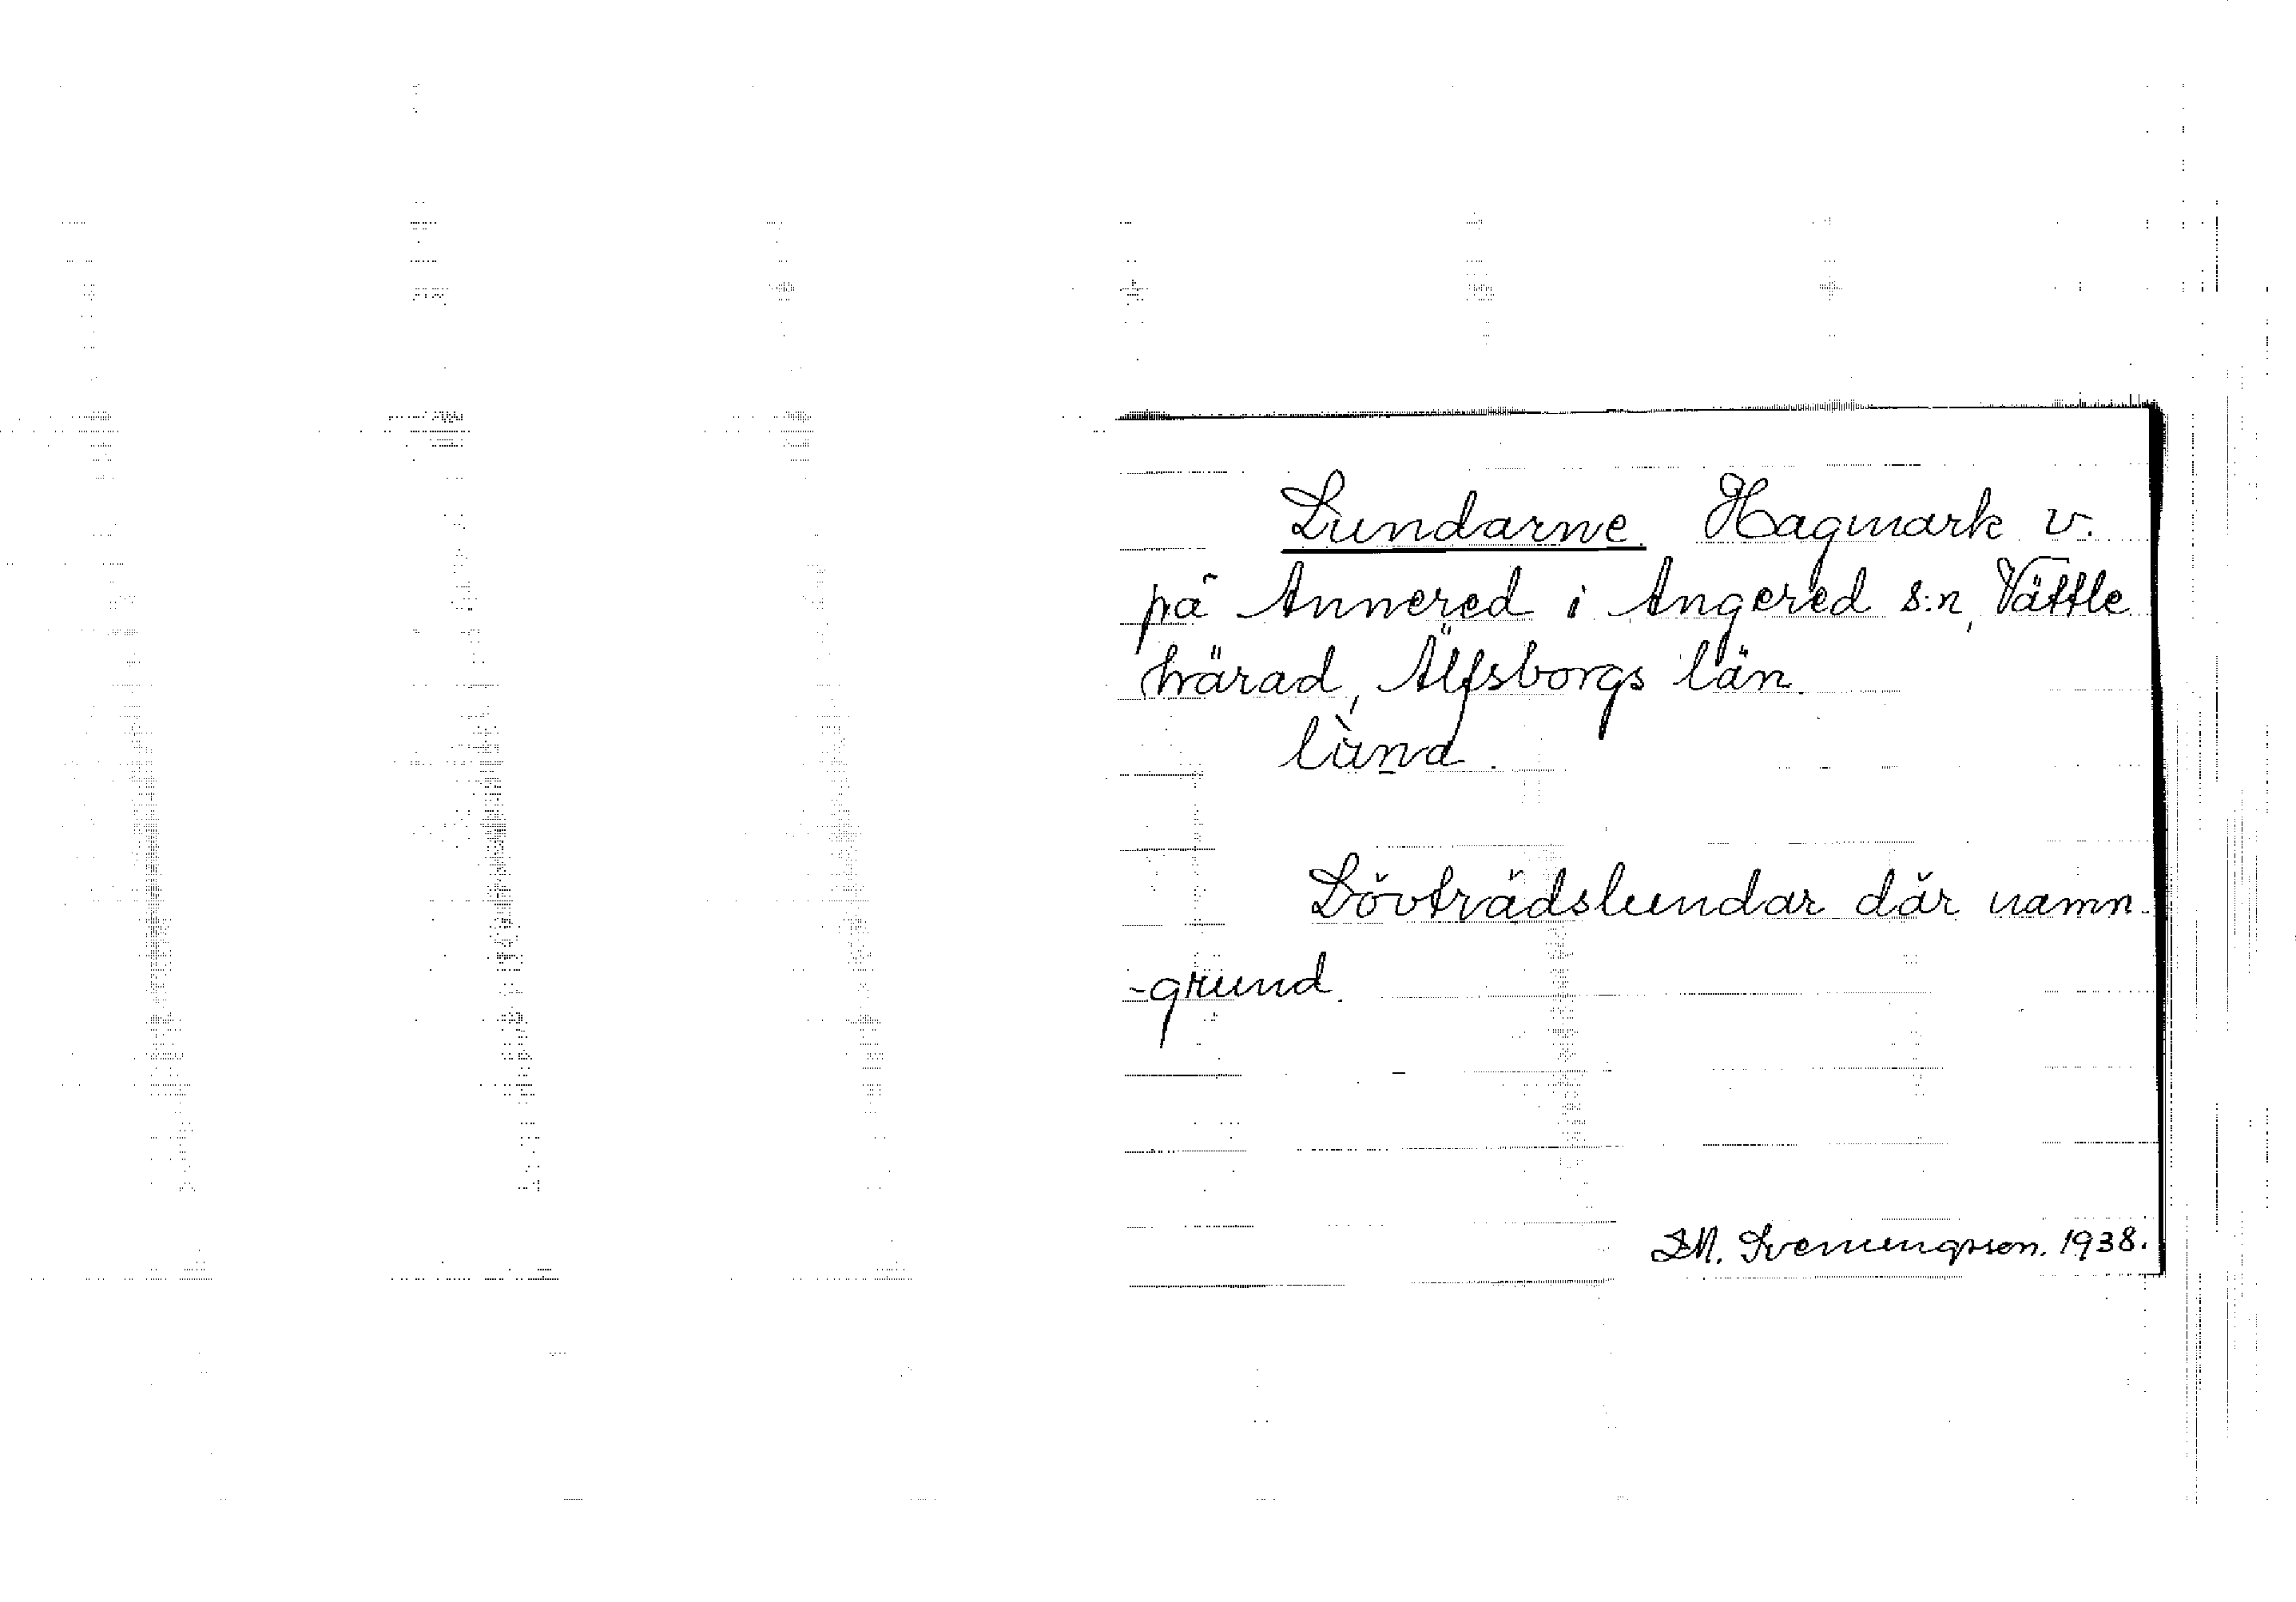 Lundarne. Hagmark v.
på Annered i Angered s:n, Vättle
härad, Älfsborgs län.
lùnd.
Lövträdslundar där namn-
-grund.
D.M. Svenungsson. 1938.